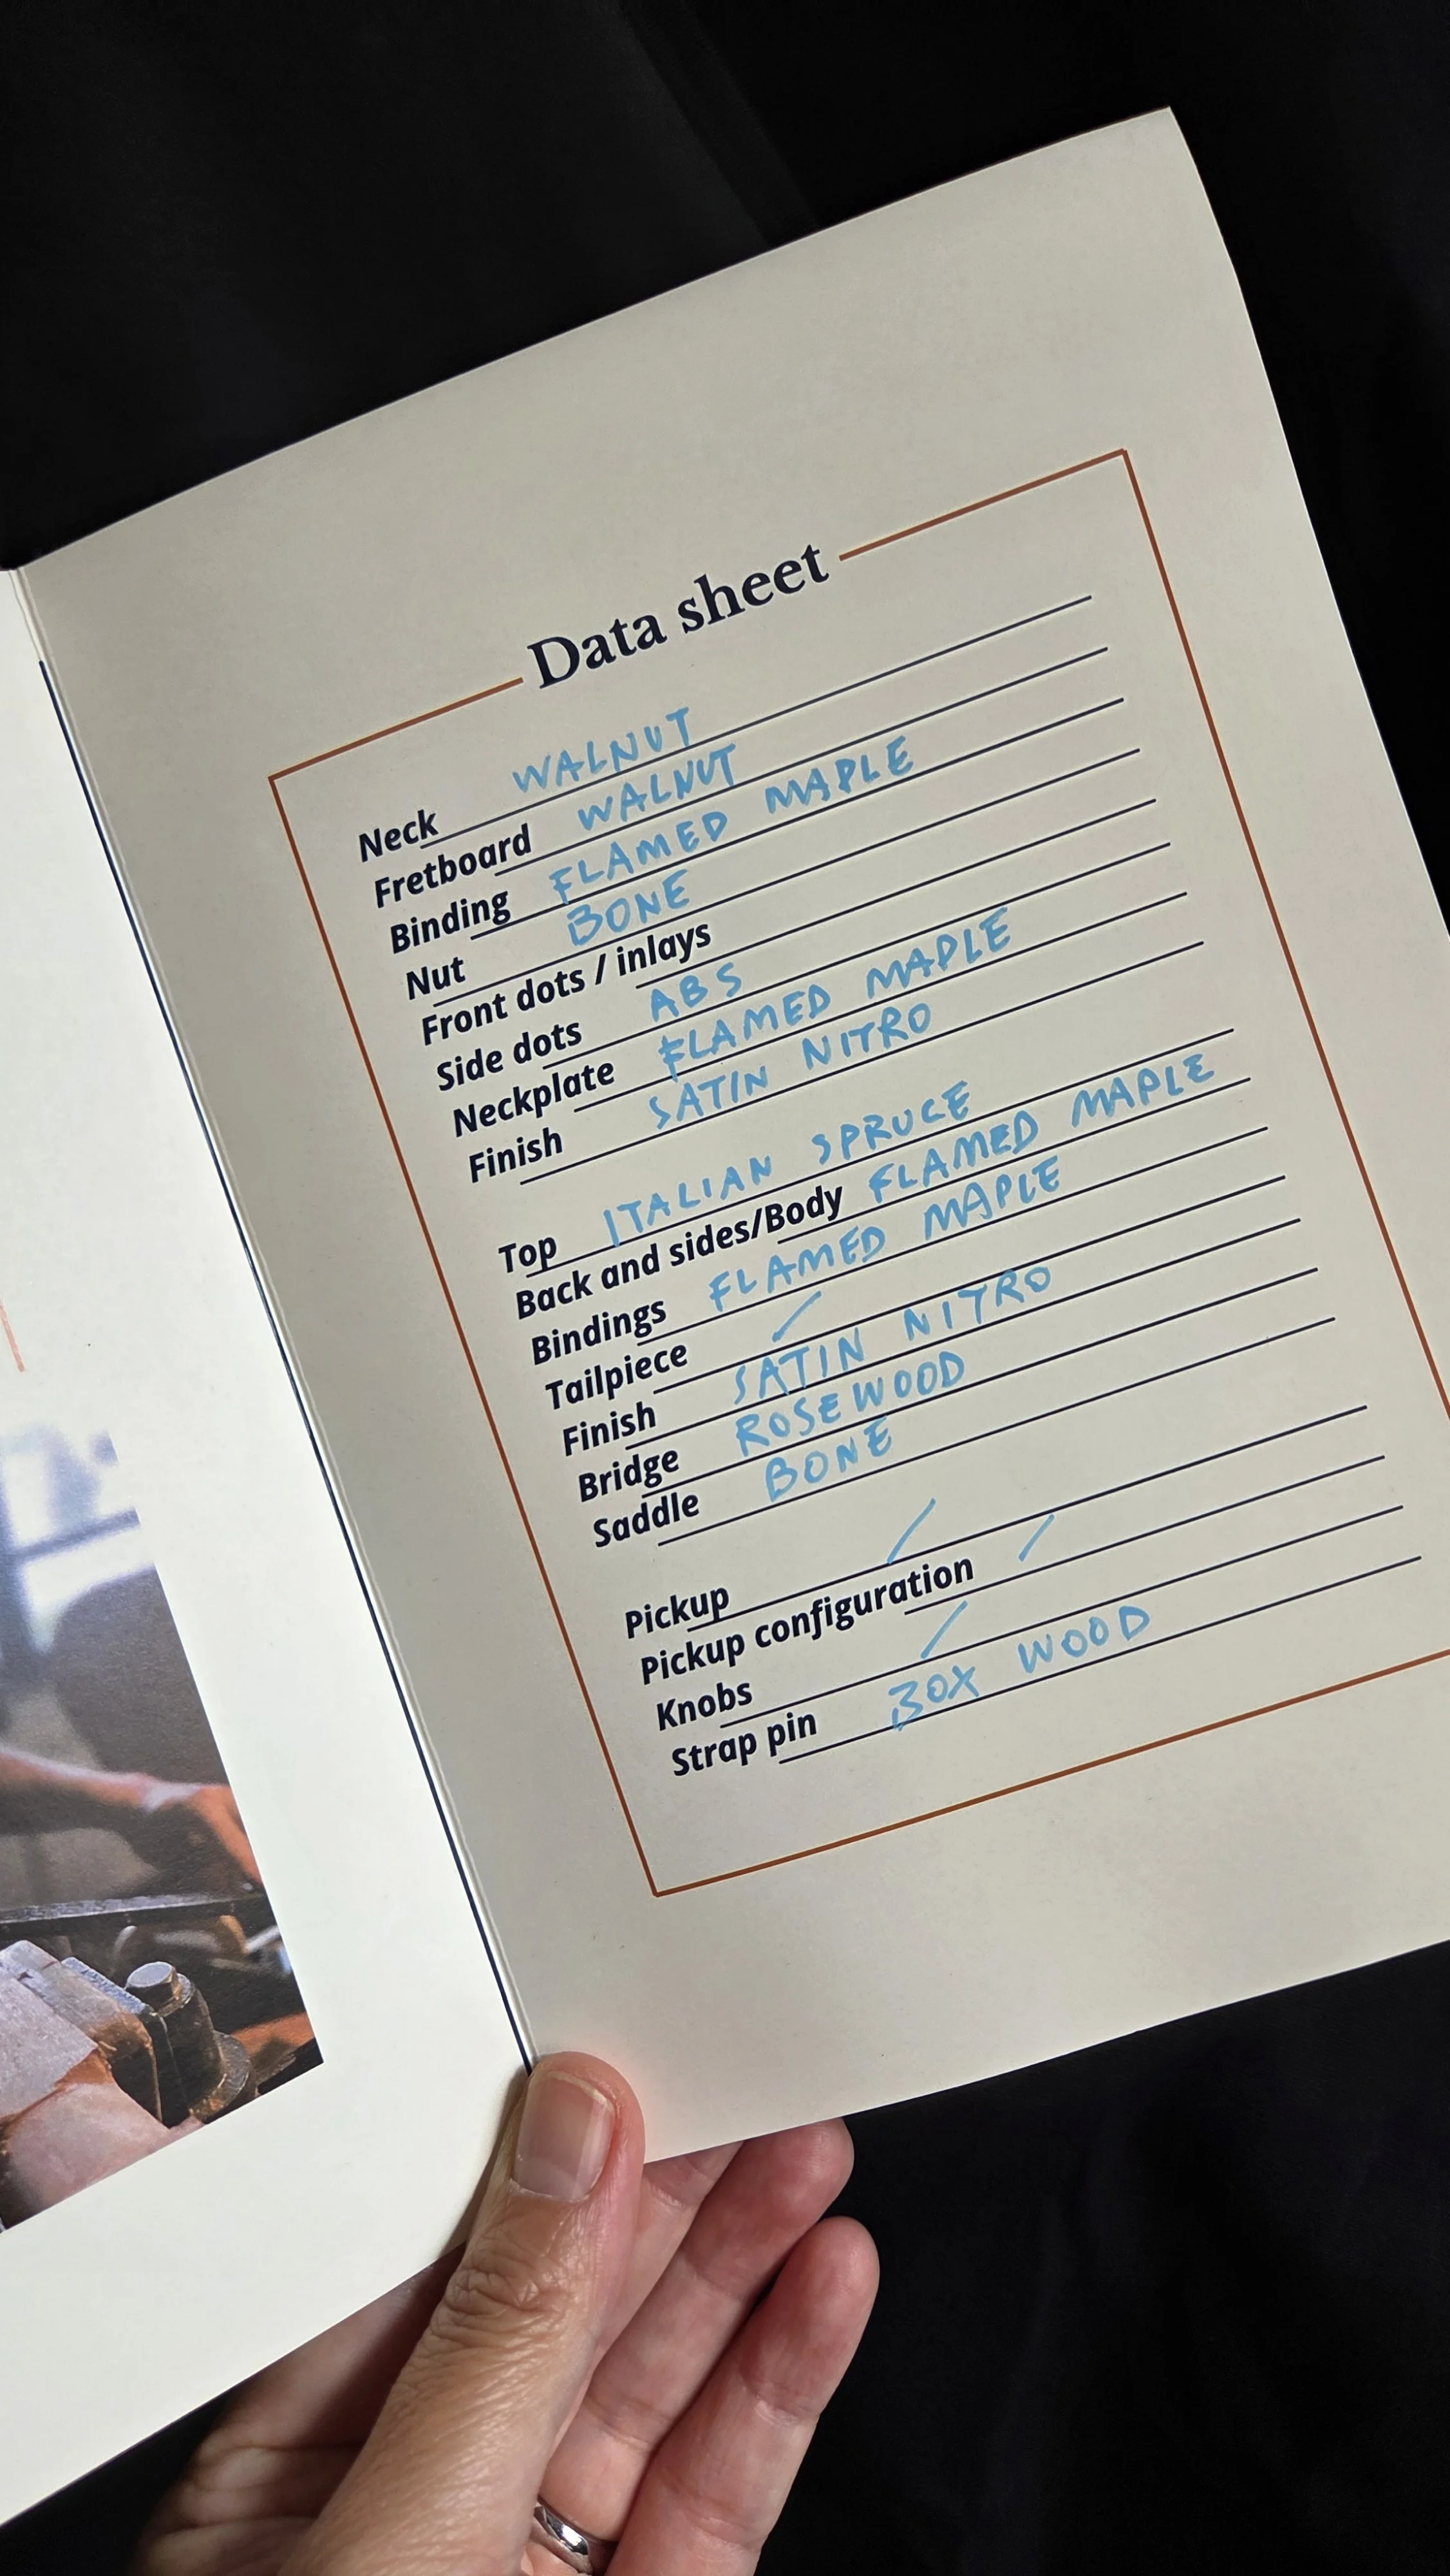 Data sheet
Neck WALNUT
Fretboard WALNUT
Binding FLAMED MAPLE
Nut BONE
Front dots / inlays
Side dots ABS
Neckplate FLAMED MAPLE
Finish SATIN NITRO
Top ITALIAN SPRUCE
Back and sides/Body FLAMED MAPLE
Bindings FLAMED MAPLE
Tailpiece /
Finish SATIN NITRO
Bridge ROSEWOOD
Saddle BONE
Pickup /
Pickup configuration /
Knobs /
Strap pin BOX WOOD